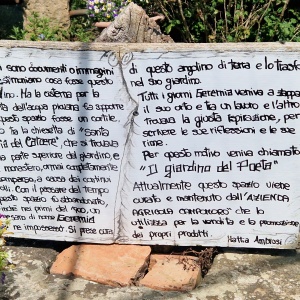 ci sono documenti o immagini
testimoniano cosa fosse questo
Ma la cisterna per la
dell'acqua piovana fa supporre
questo spazio fosse un cortile
la chiesetta di "Santa
del Carcere", che si trovava
parte superiore del giardino, e
monastero, ormai completamente
scomparso, a causa dei continui
Con il passare del tempo
spazio fu abbandonato,
nei primi del '900, un
di nome Geremia
ne impossessò. Si prese cura
di questo angolino di terra e lo trasformò
nel suo giardino.
Tutti i giorni Geremia veniva a zappare
il suo orto e tra un lavoro e l'altro
trovava la giusta ispirazione, per
scrivere le sue riflessioni e le sue
rime.
Per questo motivo veniva chiamato
"Il giardino del Poeta"
Attualmente questo spazio viene
curato e mantenuto dall'AZIENDA
AGRICOLA CAMPOROSSO che lo
utilizza per la vendita e la promozione
dei propri prodotti.
Mattia Ambrosi